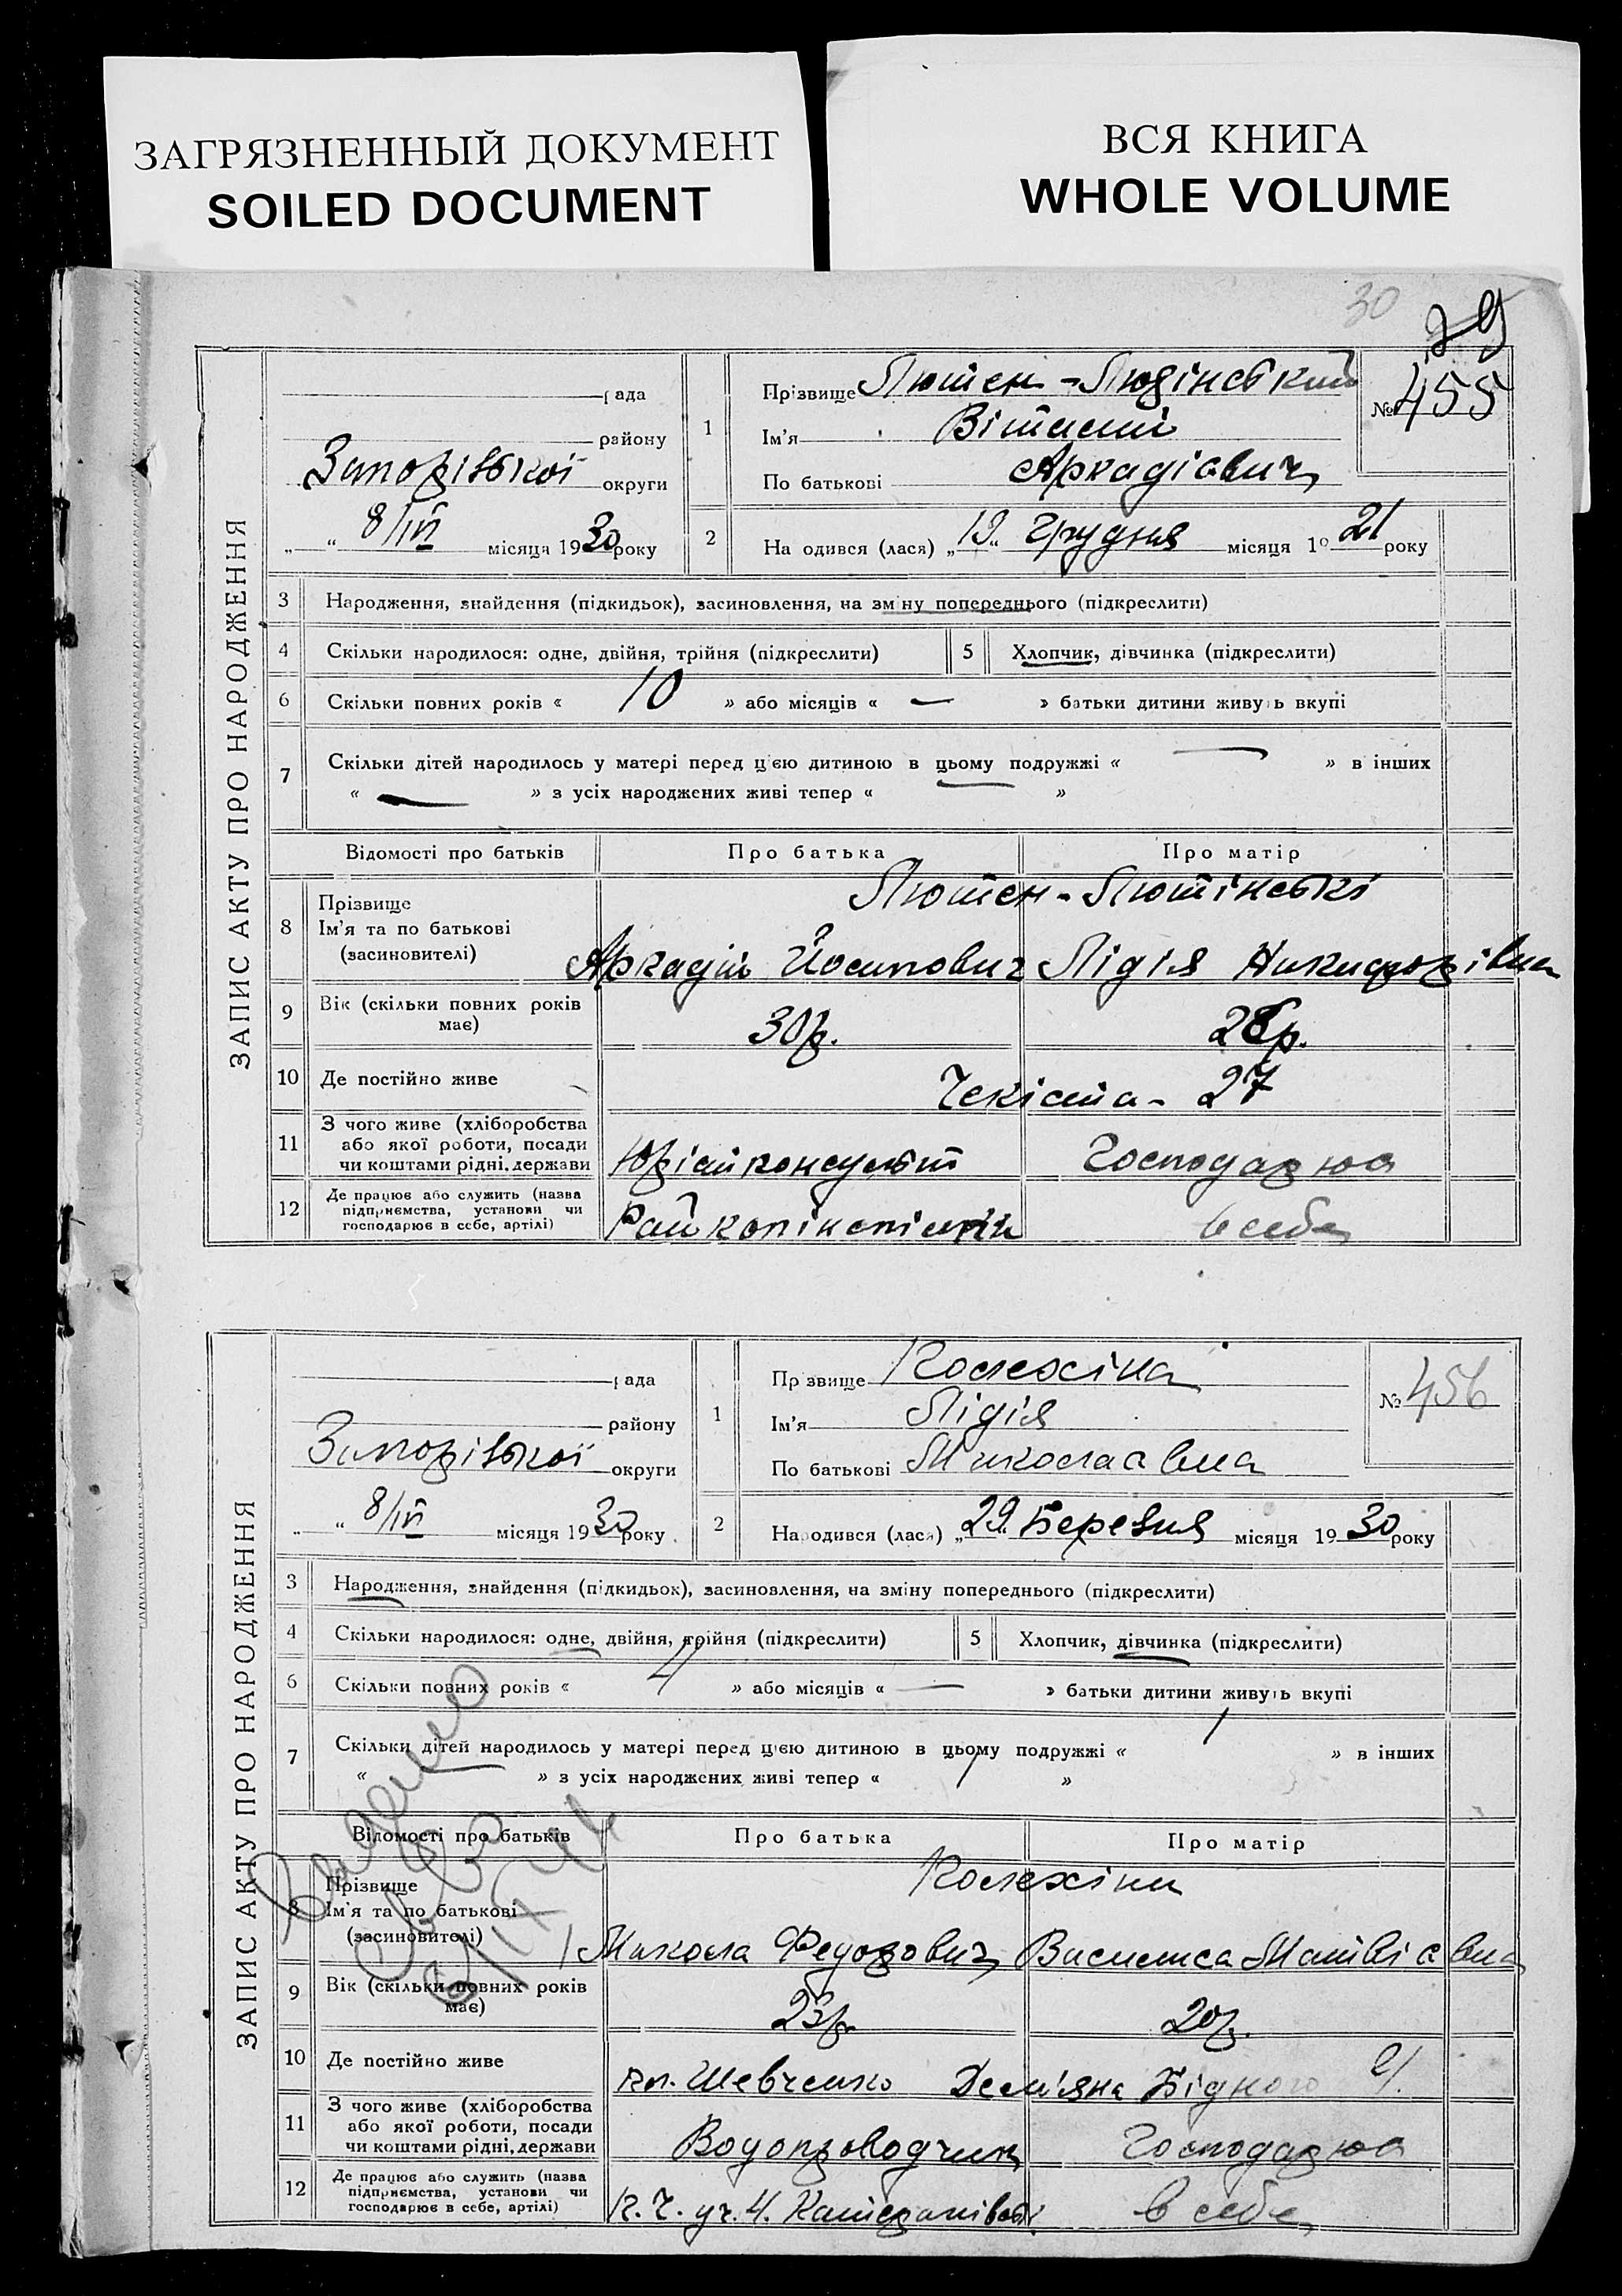 ЗАГРЯЗНЕННЫЙ ДОКУМЕНТ
SOILED DOCUMENT
ВСЯ КНИГА
WHOLE VOLUME
30
29
ЗАПИС АКТУ ПРО НАРОДЖЕННЯ
рада
району
Запорізької округи
„ “ 8/IV місяця 1930 року
1 Прізвище Лютен-Людінський
Ім'я Віталій
По батькові Аркадієвич
№ 455
2 Народився (лася) „19“ Грудня місяця 1921 року
3 Народження, знайдення (підкидьок), засиновлення, на зміну попереднього (підкреслити)
4 Скільки народилося: одне, двійня, трійня (підкреслити) 5 Хлопчик, дівчинка (підкреслити)
6 Скільки повних років « 10 » або місяців « — » батьки дитини живуть вкупі
7 Скільки дітей народилось у матері перед цією дитиною в цьому подружжі « — » в інших
« — » з усіх народжених живі тепер « »
Відомості про батьків Про батька Про матір
8 Прізвище
Ім'я та по батькові
(засиновителі)
Лютен-Лютінські
Аркадій Йосипович Лідія Никифорівна
9 Вік (скільки повних років має) 30 р. 28 р.
10 Де постійно живе Чекіста - 27
11 З чого живе (хліборобства
або якої роботи, посади
чи коштами рідні, держави
Юрісконсульт Господарює
12 Де працює або служить (назва
підприємства, установи чи
господарює в себе, артілі)
в себе
ЗАПИС АКТУ ПРО НАРОДЖЕННЯ
рада
району
Запорізької округи
„ “ 8/IV місяця 1930 року
1 Прізвище Колехіна
Ім'я Лідія
По батькові Миколаєвна
№ 456
2 Народився (лася) „29“ Березня місяця 1930 року
3 Народження, знайдення (підкидьок), засиновлення, на зміну попереднього (підкреслити)
4 Скільки народилося: одне, двійня, трійня (підкреслити) 5 Хлопчик, дівчинка (підкреслити)
6 Скільки повних років « 4 » або місяців « — » батьки дитини живуть вкупі
7 Скільки дітей народилось у матері перед цією дитиною в цьому подружжі « 1 » в інших
« — » з усіх народжених живі тепер « 1 »
Відомості про батьків Про батька Про матір
8 Прізвище
Ім'я та по батькові
(засиновителі)
Колехіни
Микола Федорович Василиса Матвієвна
9 Вік (скільки повних років має) 23 р. 20 р.
10 Де постійно живе пл. Шевченко Дем'яна Бідного 21.
11 З чого живе (хліборобства
або якої роботи, посади
чи коштами рідні, держави
Водопроводчик Господарює
12 Де працює або служить (назва
підприємства, установи чи
господарює в себе, артілі)
в себе